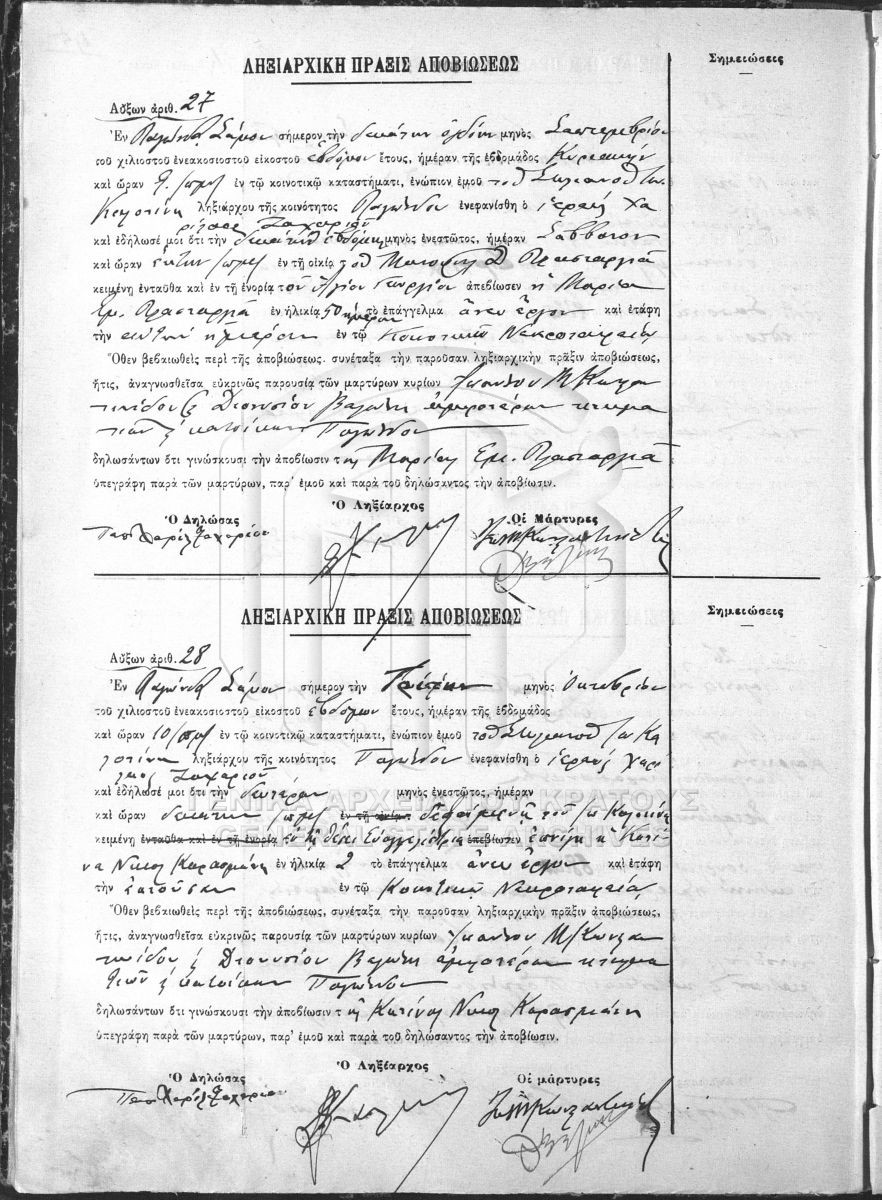 ΛΗΞΙΑΡΧΙΚΗ ΠΡΑΞΙΣ ΑΠΟΒΙΩΣΕΩΣ
Σημειώσεις
Αὔξων ἀριθ. 27
Ἐν Παγώνδᾳ Σάμου σήμερον τὴν δεκάτην ὀγδόην μηνὸς Σεπτεμβρίου
τοῦ χιλιοστοῦ ἐνεακοσιοστοῦ εἰκοστοῦ ἑβδόμου ἔτους, ἡμέραν τῆς ἑβδομάδος Κυριακὴν
καὶ ὥραν ἐν τῷ κοινοτικῷ καταστήματι, ἐνώπιον ἐμοῦ τοῦ
ληξιάρχου τῆς κοινότητος Παγώνδου ἐνεφανίσθη ὁ ἱερεὺς Χα
ρίτος Ζαχαρίου
καὶ ἐδήλωσέ μοι ὅτι τὴν δεκάτην ἑβδόμην μηνὸς ἐνεστῶτος, ἡμέραν Σάββατον
καὶ ὥραν ἐν τῇ οἰκίᾳ τοῦ
κειμένῃ ἐνταῦθα καὶ ἐν τῇ ἐνορίᾳ τοῦ Ἁγίου Γεωργίου ἀπεβίωσεν ἡ Μαρία
Εμ. ἐν ἡλικίᾳ 50 ἡμερῶν τὸ ἐπάγγελμα ἄνευ ἔργου καὶ ἐτάφη
τὴν αὐτὴν ἡμέραν ἐν τῷ Κοινοτικῷ Νεκροταφείῳ
Ὅθεν βεβαιωθεὶς περὶ τῆς ἀποβιώσεως. συνέταξα τὴν παροῦσαν ληξιαρχικὴν πρᾶξιν ἀποβιώσεως,
ἥτις, ἀναγνωσθεῖσα εὐκρινῶς παρουσίᾳ τῶν μαρτύρων κυρίων Ἰωάννου Μ Κωνσταν
τινίδου & Διονυσίου ἀμφοτέρων κτημα
τιῶν & κατοίκων Παγώνδου
δηλωσάντων ὅτι γινώσκουσι τὴν ἀποβίωσιν τῆς Μαρίας Εμ.
ὑπεγράφη παρὰ τῶν μαρτύρων, παρ' ἐμοῦ καὶ παρὰ τοῦ δηλώσαντος τὴν ἀποβίωσιν.
Ὁ Δηλώσας
Ὁ Ληξίαρχος
Οἱ Μάρτυρες
ΛΗΞΙΑΡΧΙΚΗ ΠΡΑΞΙΣ ΑΠΟΒΙΩΣΕΩΣ
Σημειώσεις
Αὔξων ἀριθ. 28
Ἐν Παγώνδᾳ Σάμου σήμερον τὴν Τρίτην μηνὸς Ὀκτωβρίου
τοῦ χιλιοστοῦ ἐνεακοσιοστοῦ εἰκοστοῦ ἑβδόμου ἔτους, ἡμέραν τῆς ἑβδομάδος
καὶ ὥραν 10 πμ ἐν τῷ κοινοτικῷ καταστήματι, ἐνώπιον ἐμοῦ τοῦ
ληξιάρχου τῆς κοινότητος Παγώνδου ἐνεφανίσθη ὁ ἱερεὺς
Ζαχαρίου
καὶ ἐδήλωσέ μοι ὅτι τὴν δευτέραν μηνὸς ἐνεστῶτος, ἡμέραν
καὶ ὥραν δεκάτην ἐν τῇ οἰκίᾳ δεξαμενῇ τοῦ
κειμένῃ ἐνταῦθα καὶ ἐν τῇ ἐνορίᾳ θέσει Εὐαγγελίστρια ἀπεβίωσεν ἐπνίγη ἡ Κατί
να Νικολ Καρασμάνη ἐν ἡλικίᾳ 2 τὸ ἐπάγγελμα ἄνευ ἔργου καὶ ἐτάφη
τὴν ἐν τῷ Κοινοτικῷ Νεκροταφείῳ
Ὅθεν βεβαιωθεὶς περὶ τῆς ἀποβιώσεως, συνέταξα τὴν παροῦσαν ληξιαρχικὴν πρᾶξιν ἀποβιώσεως,
ἥτις, ἀναγνωσθεῖσα εὐκρινῶς παρουσίᾳ τῶν μαρτύρων κυρίων Ἰωάννου Μ Κωνσταν
τινίδου & Διονυσίου ἀμφοτέρων κτημα
τιῶν & κατοίκων Παγώνδου
δηλωσάντων ὅτι γινώσκουσι τὴν ἀποβίωσιν τῆς Κατίνας Νικολ Καρασμάνη
ὑπεγράφη παρὰ τῶν μαρτύρων, παρ' ἐμοῦ καὶ παρὰ τοῦ δηλώσαντος τὴν ἀποβίωσιν.
Ὁ Δηλώσας
Ὁ Ληξίαρχος
Οἱ μάρτυρες
ΓΕΝΙΚΑ ΑΡΧΕΙΑ ΤΟΥ ΚΡΑΤΟΥΣ
GENERAL STATE ARCHIVES